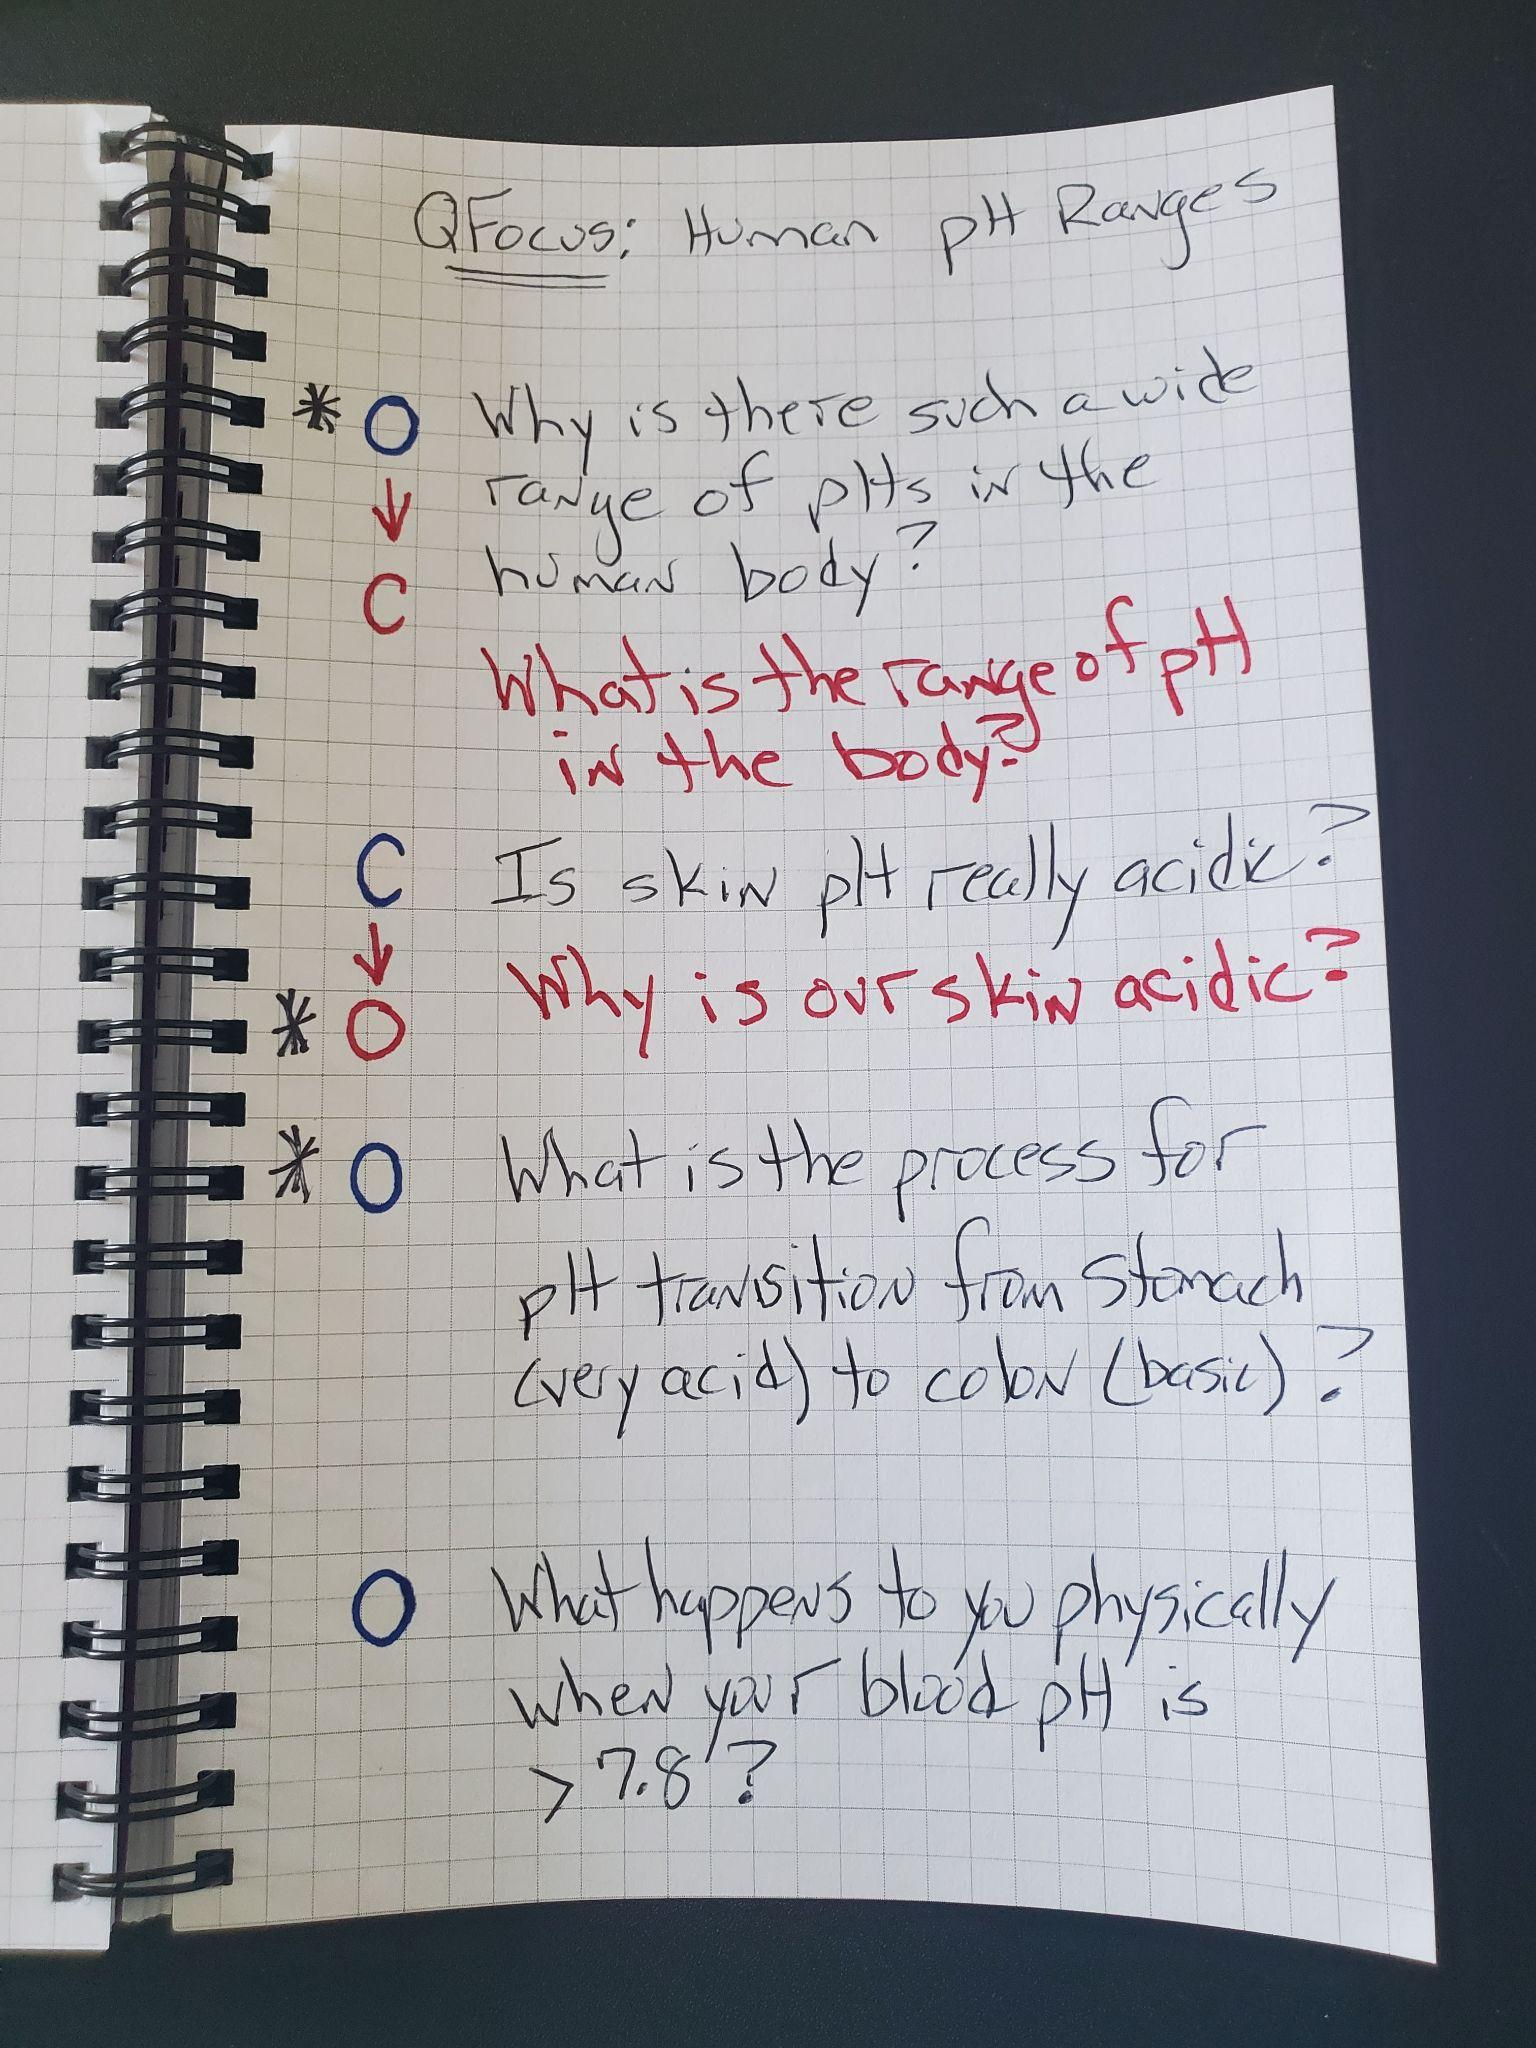 QFocus: Human pH Ranges
* O Why is there such a wide
↓ range of pHs in the
C human body?
What is the range of pH
in the body?
C Is skin pH really acidic?
↓ Why is our skin acidic?
* O
* O What is the process for
pH transition from stomach
(very acid) to colon (basic)?
O What happens to you physically
when your blood pH is
> 7.8?